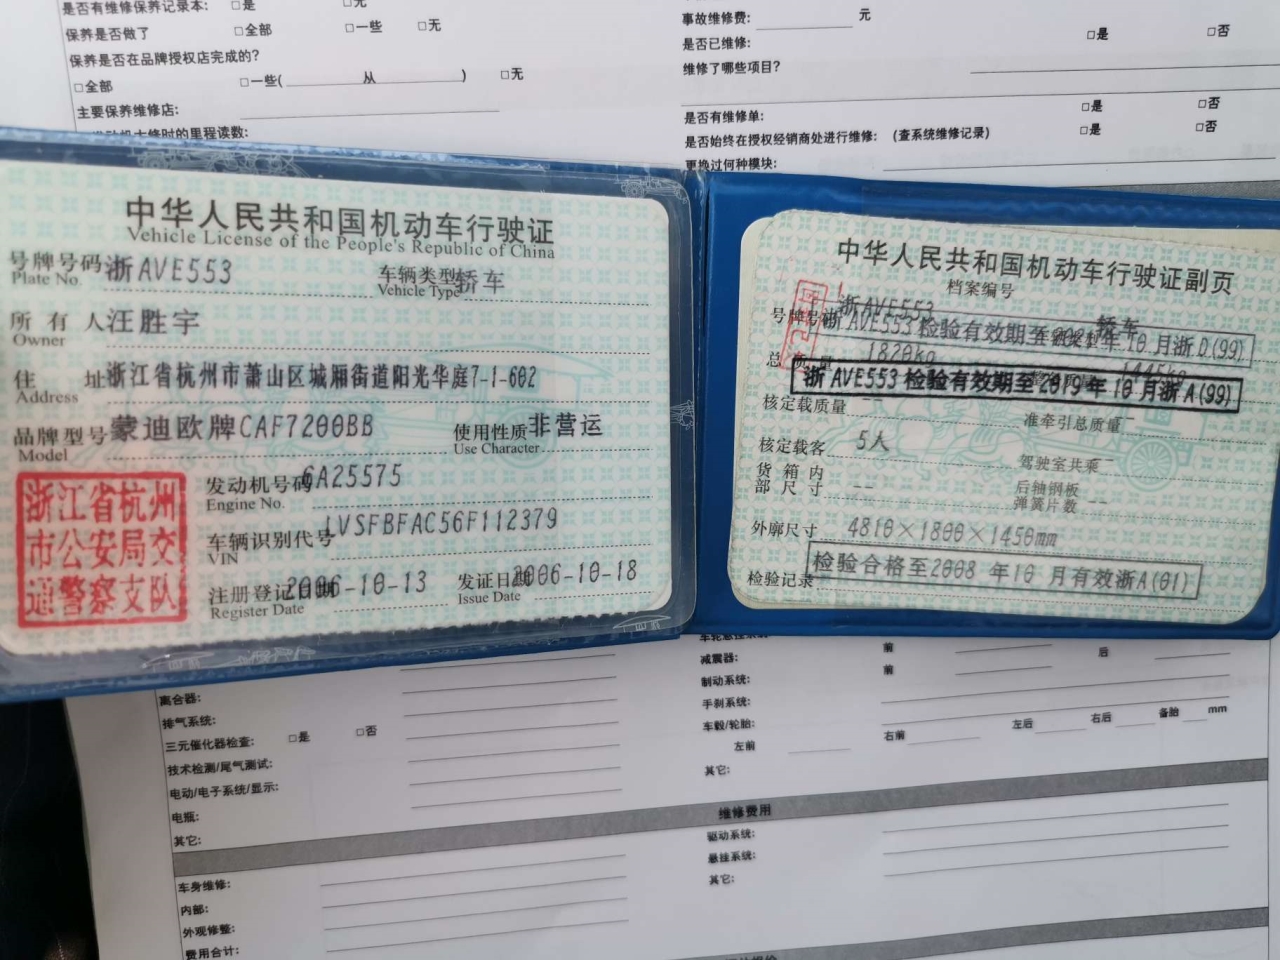 是否有维修保养记录本: □是 □无
保养是否做了 □全部 □一些 □无
保养是否在品牌授权店完成的?
□全部 □一些( 从 ) □无
主要保养维修店:
发动机大修时的里程读数:
事故维修费: 元
是否已维修: □是 □否
维修了哪些项目?
是否有维修单: □是 □否
是否始终在授权经销商处进行维修: (查系统维修记录) □是 □否
更换过何种模块:
中华人民共和国机动车行驶证
Vehicle License of the People's Republic of China
号牌号码 浙AVE553 车辆类型 轿车
Plate No. Vehicle Type
所有人 汪胜宇
Owner
住址 浙江省杭州市萧山区城厢街道阳光华庭7-1-602
Address
品牌型号 蒙迪欧牌CAF7200BB 使用性质 非营运
Model Use Character
浙江省杭州
市公安局交
通警察支队
发动机号码 6A25575
Engine No.
车辆识别代号 LVSFBFAC56F112379
VIN
注册登记日期 2006-10-13 发证日期 2006-10-18
Register Date Issue Date
中华人民共和国机动车行驶证副页
档案编号
号牌号码 浙AVE553 轿车
浙AVE553 检验有效期至 年10月浙D(99)
总质量 1820kg 1445kg
浙AVE553 检验有效期至2019年10月浙A(99)
核定载质量 -- 准牵引总质量 --
核定载客 5人 驾驶室共乘 --
货箱内部尺寸 -- 后轴钢板弹簧片数 --
外廓尺寸 4810×1800×1450mm
检验记录 检验合格至2008 年10 月有效浙A(01)
离合器:
排气系统:
三元催化器检查: □是 □否
技术检测/尾气测试:
电动/电子系统/显示:
电瓶:
其它:
减震器: 前 后
制动系统: 前
手刹系统:
车毂/轮胎: 左后 右后 备胎 mm
左前 右前
其它:
维修费用
车身维修:
内部:
外观修整:
费用合计:
驱动系统:
悬挂系统:
其它: